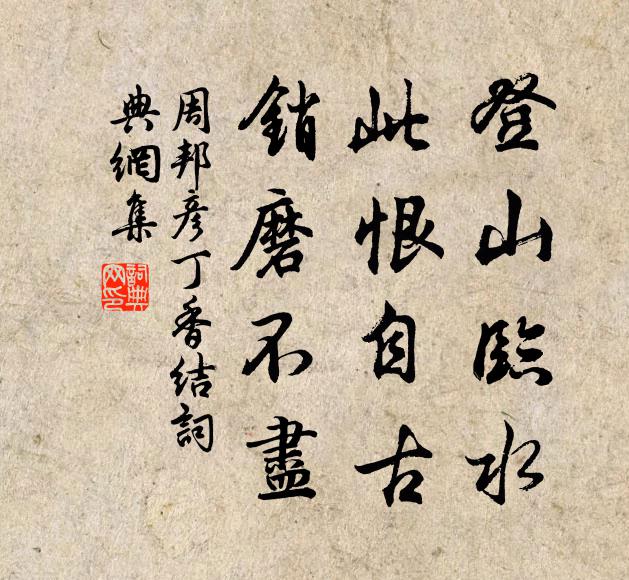 登山臨水
此恨自古
銷磨不盡
周邦彦丁香结詞
典網集
詞典網印